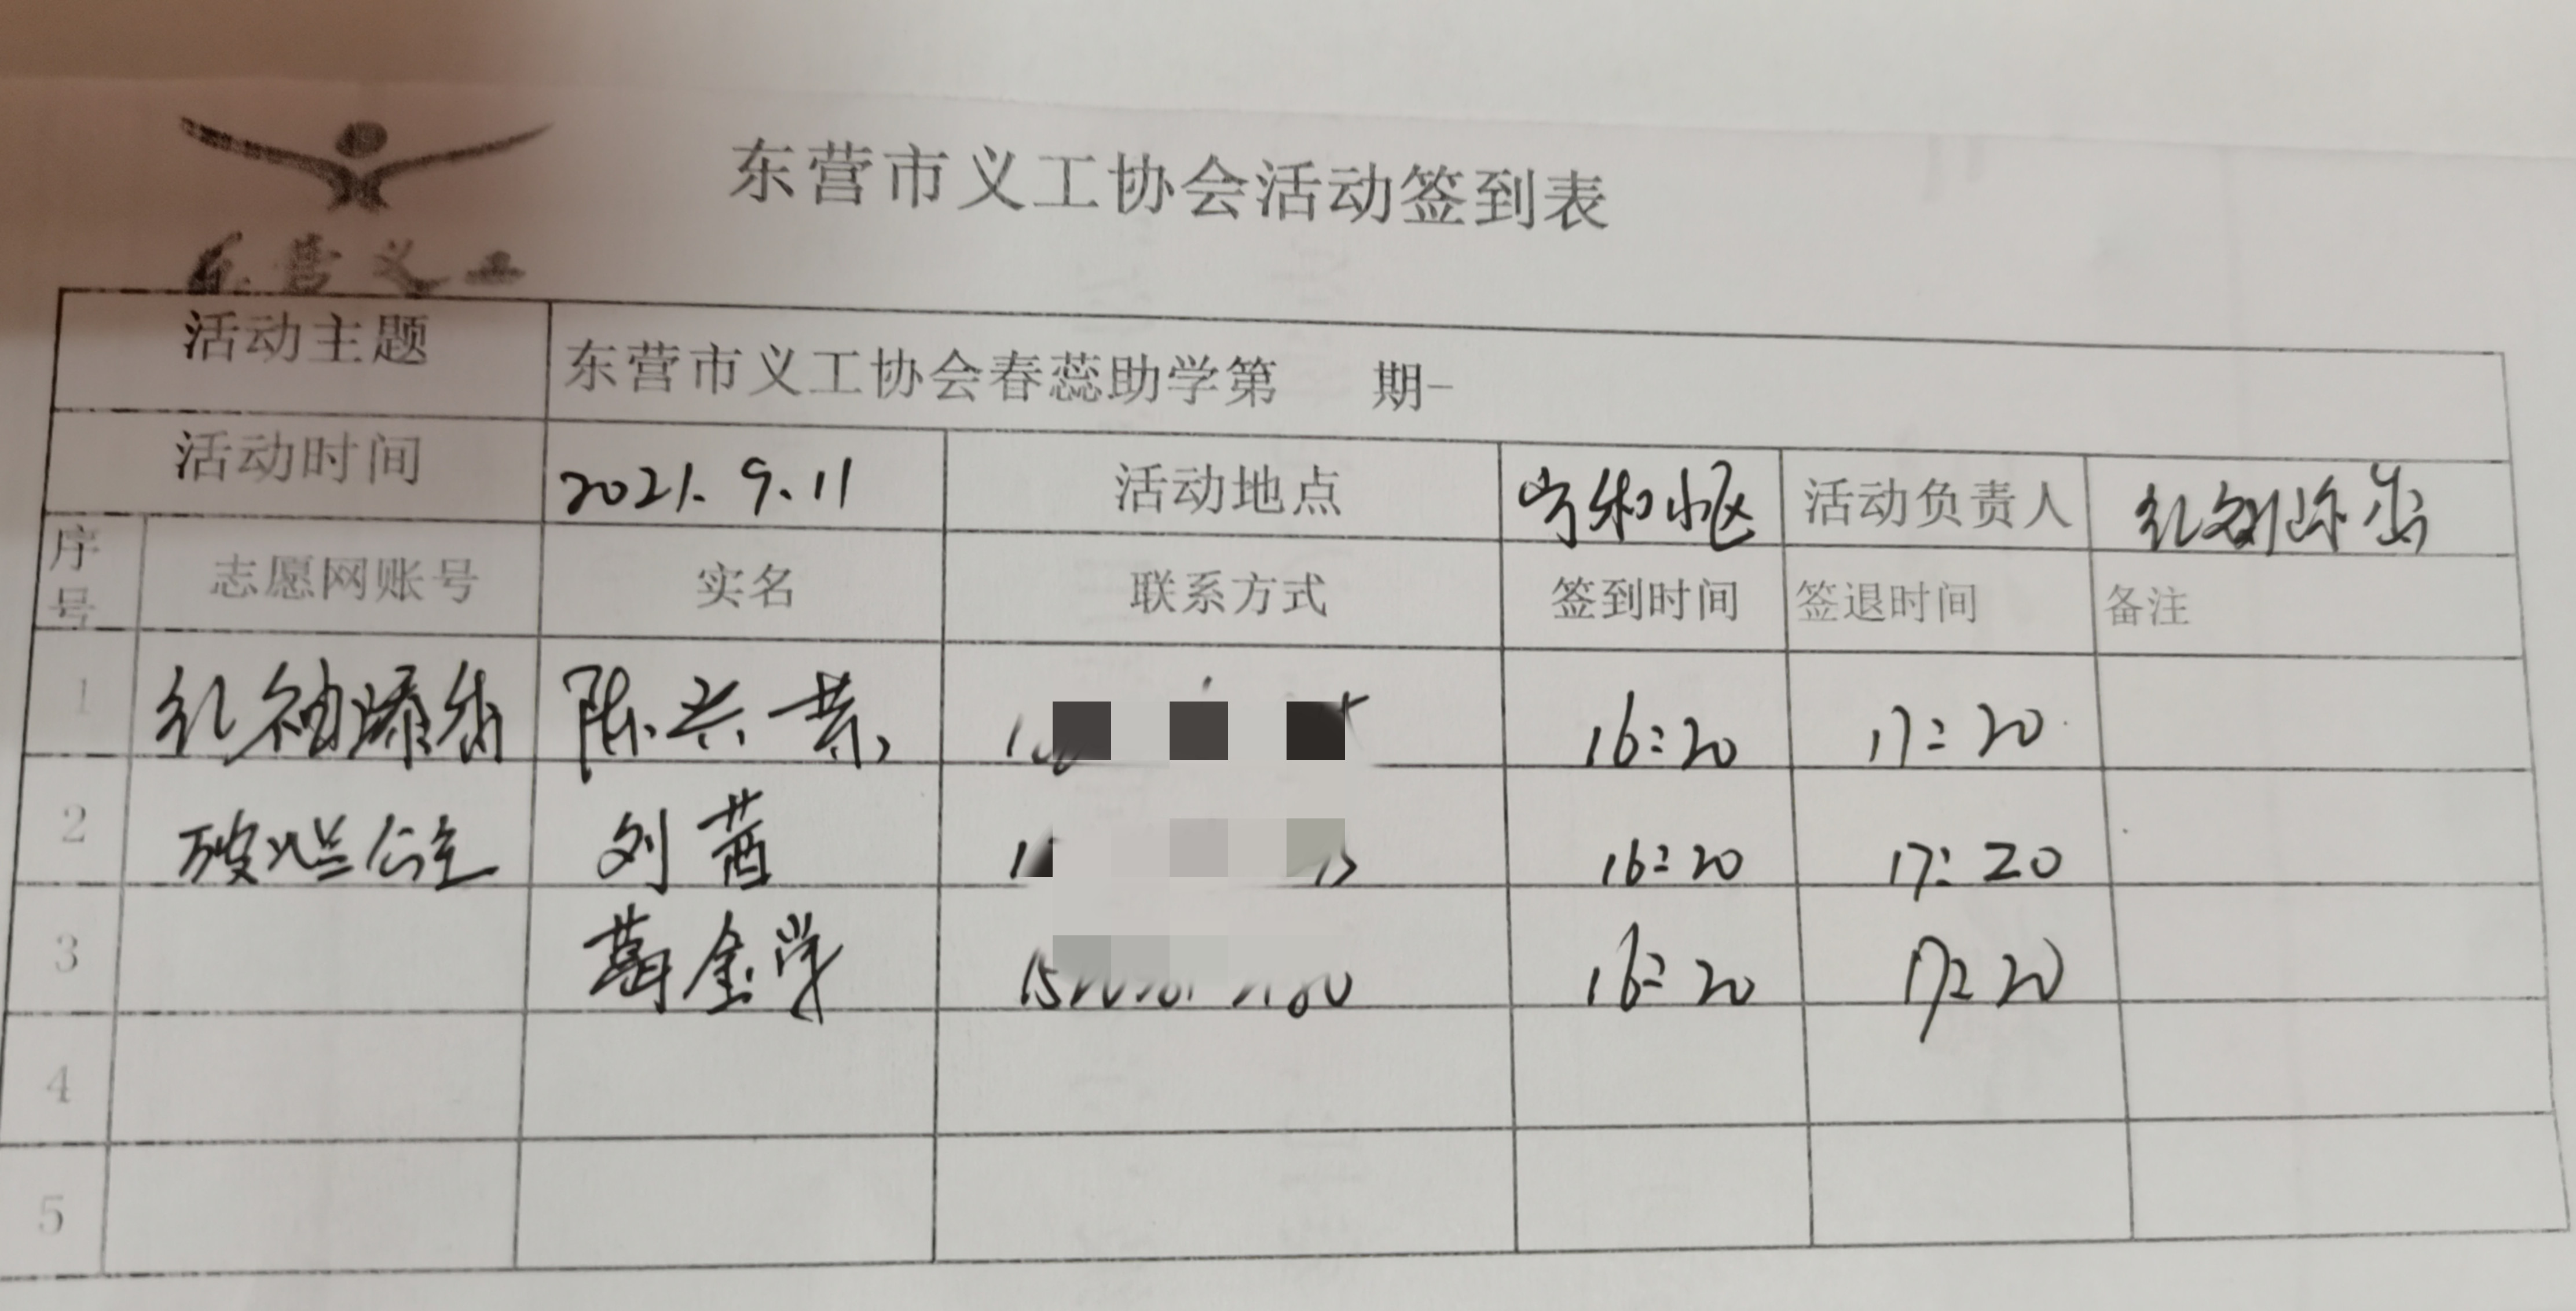 东营义工
东营市义工协会活动签到表
活动主题 东营市义工协会春蕊助学第 期-
活动时间 2021.9.11 活动地点 小区 活动负责人
序号 志愿网账号 实名 联系方式 签到时间 签退时间 备注
1 红袖添香 陈兴 16:20 17:20
2 破烂公主 刘茜 16:20 17:20
3 葛金学 16:20 17:20
4
5